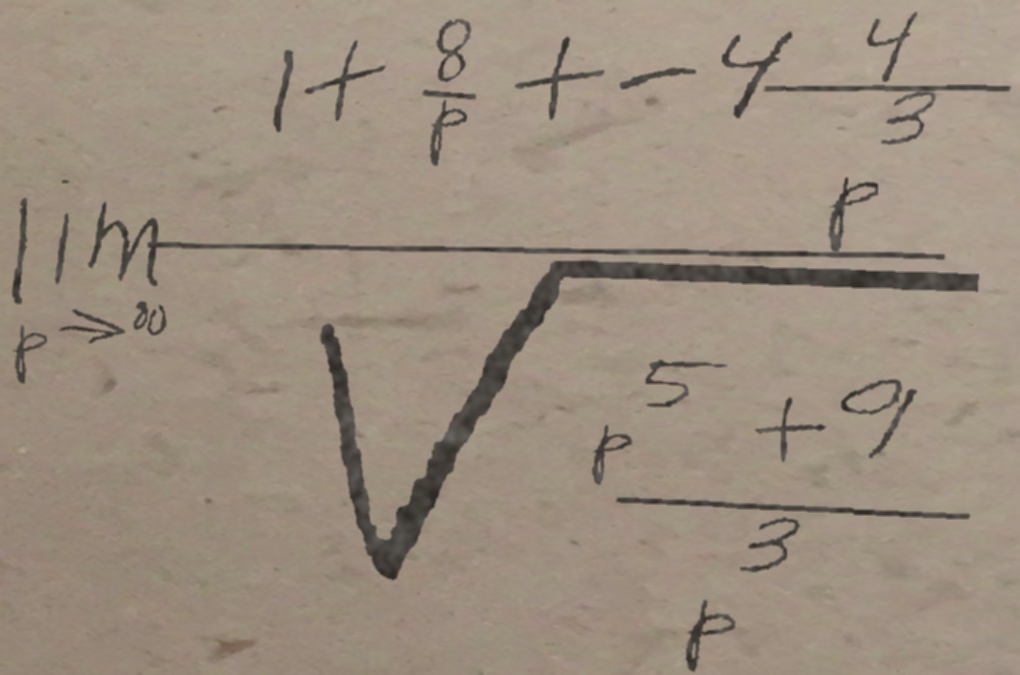 \lim_{p \to \infty} \frac{1+\frac{8}{p}+-4\frac{4}{p^{3}}}{\sqrt{\frac{p^{5}+9}{p^{3}}}}